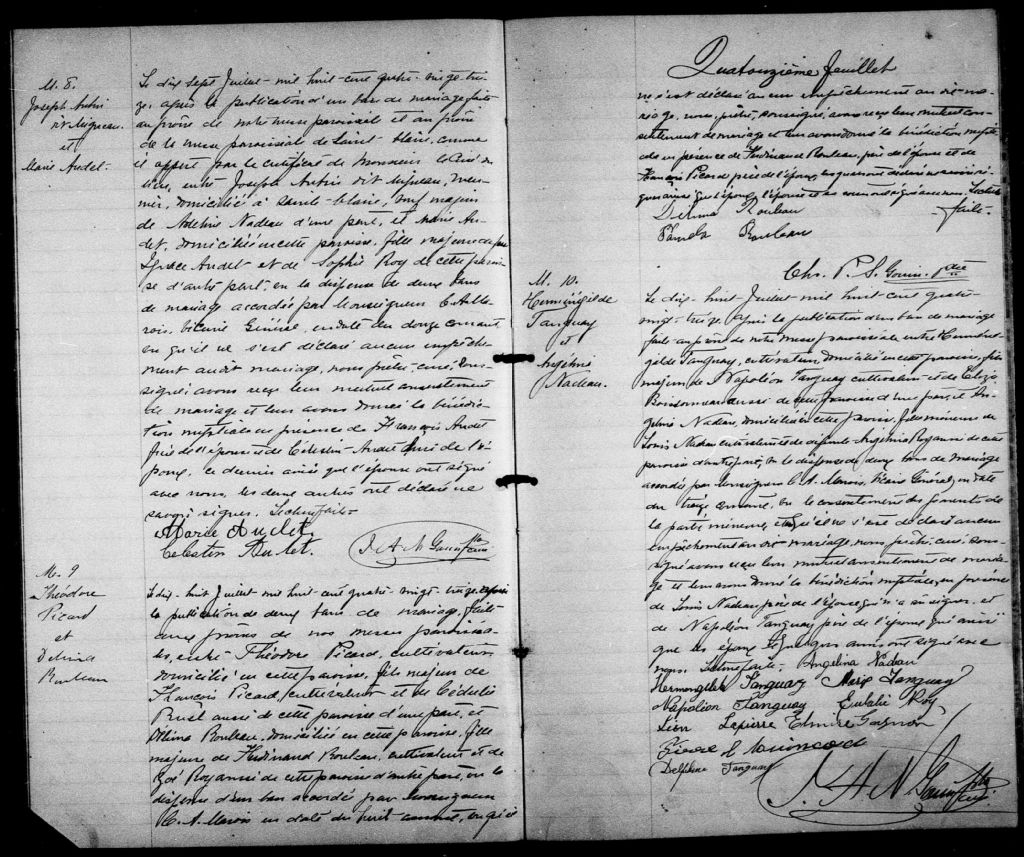 M. 8.
Joseph Aubin
dit Migneau.
et
Marie Audet.
Le dix sept Juillet mil huit-cent quatre-vingt-trei
ze, après la publication d'un ban de mariage faite
au prône de notre messe paroissiale et au prône
de la messe paroissiale de Saint-blaise, comme
il appert par le certificat de Monsieur le Curé du
lieu, entre Joseph Aubin dit Migneau,
domicilié à Sainte-blaise, veuf majeur
de Adeline Nadeau d'une part, et Marie Au-
det, domiciliée en cette paroisse, fille majeure de feu
Ignace Audet et de Sophie Roy de cette parois-
se d'autre part; en la dispense de deux bans
de mariage accordée par Monseigneur C. A. Ma-
rois, Vicaire Général, en date du douze courant,
en qu'il ne s'est déclaré aucun empêche-
ment audit mariage, nous prêtre-curé, sous-
signé, avons reçu leur mutuel consentement
de mariage et leur avons donné la bénédic-
tion nuptiale en présence de François Audet
frère de l'épouse et de Célestin Audet ami de l'é-
poux, ce dernier ainsi que l'épouse ont signé
avec nous, les deux autres ont déclaré ne
savoir signer. Lecture faite.
Marie Audet.
Celestin Audet.
J. A. N. Gouin Ptre curé
M. 9
Théodore
Picard
et
Délima
Rouleau
Le dix-huit Juillet mil huit cent quatre-vingt-treize, après
la publication de deux bans de mariage, faite
aux prônes de nos messes paroissia-
les, entre Théodore Picard, cultivateur
domicilié en cette paroisse, fils majeur de
François Picard, cultivateur et de Cédulie
aussi de cette paroisse d'une part, et
Délima Rouleau, domiciliée en cette paroisse, fille
majeure de Ferdinand Rouleau, cultivateur et de
Zoé Roy aussi de cette paroisse d'autre part, vu la
dispense d'un ban accordée par Monseigneur
C. A. Marois en date du huit courant, vu qu'il
Quatorzième feuillet
ne s'est déclaré aucun empêchement au dit ma-
riage, nous, prêtre, soussigné, avons reçu leur mutuel con-
sentement de mariage et leur avons donné la bénédiction nuptia-
le en présence de Ferdinand Rouleau, père de l'épouse et de
François Picard père de l'époux, lesquels ont déclaré ne savoir si-
gner ainsi que l'époux, l'épouse et ont signé avec nous. Lecture
faite.
Délima Rouleau
Rouleau
Chs. P. S. Gouin. Ptre
M. 10.
Herménégilde
Tanguay
et
Angélina
Nadeau.
Le dix-huit Juillet mil huit cent quatre-
vingt-treize, après la publication d'un ban de mariage
faite au prône de notre messe paroissiale entre Herméné-
gilde Tanguay, cultivateur, domicilié en cette paroisse, fils
majeur de Napoléon Tanguay cultivateur et de
Boissonneau aussi de cette paroisse d'une part, et An-
gelina Nadeau, domiciliée en cette paroisse, fille mineure de
Louis Nadeau cultivateur et de défunte Angélina Roy aussi de cette
paroisse d'autre part, vu la dispense de deux bans de mariage
accordée par Monseigneur C. A. Marois, Vicaire Général, en date
du treize courant, vu le consentement des parents de
la partie mineure, et qu'il ne s'est déclaré aucun
empêchement au dit mariage, nous, prêtre, curé, sous-
signé avons reçu leur mutuel consentement de maria-
ge et leur avons donné la bénédiction nuptiale, en présence
de Louis Nadeau père de l'épouse qui n'a su signer, et
de Napoléon Tanguay père de l'époux qui ainsi
que les époux et quelques amis ont signé avec
nous. Lecture faite. Angelina Nadeau
Hermenegilde Tanguay Marie Tanguay
Napoléon Tanguay Eulalie Roy
Léon Lapierre Elmire Gagnon
Delphine Tanguay
J. A. N. Gouin Ptre curé.